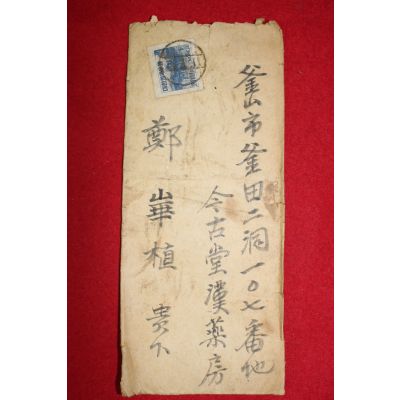 釜山市釜田二洞一〇七番地
今古堂漢藥房
鄭華植 貴下